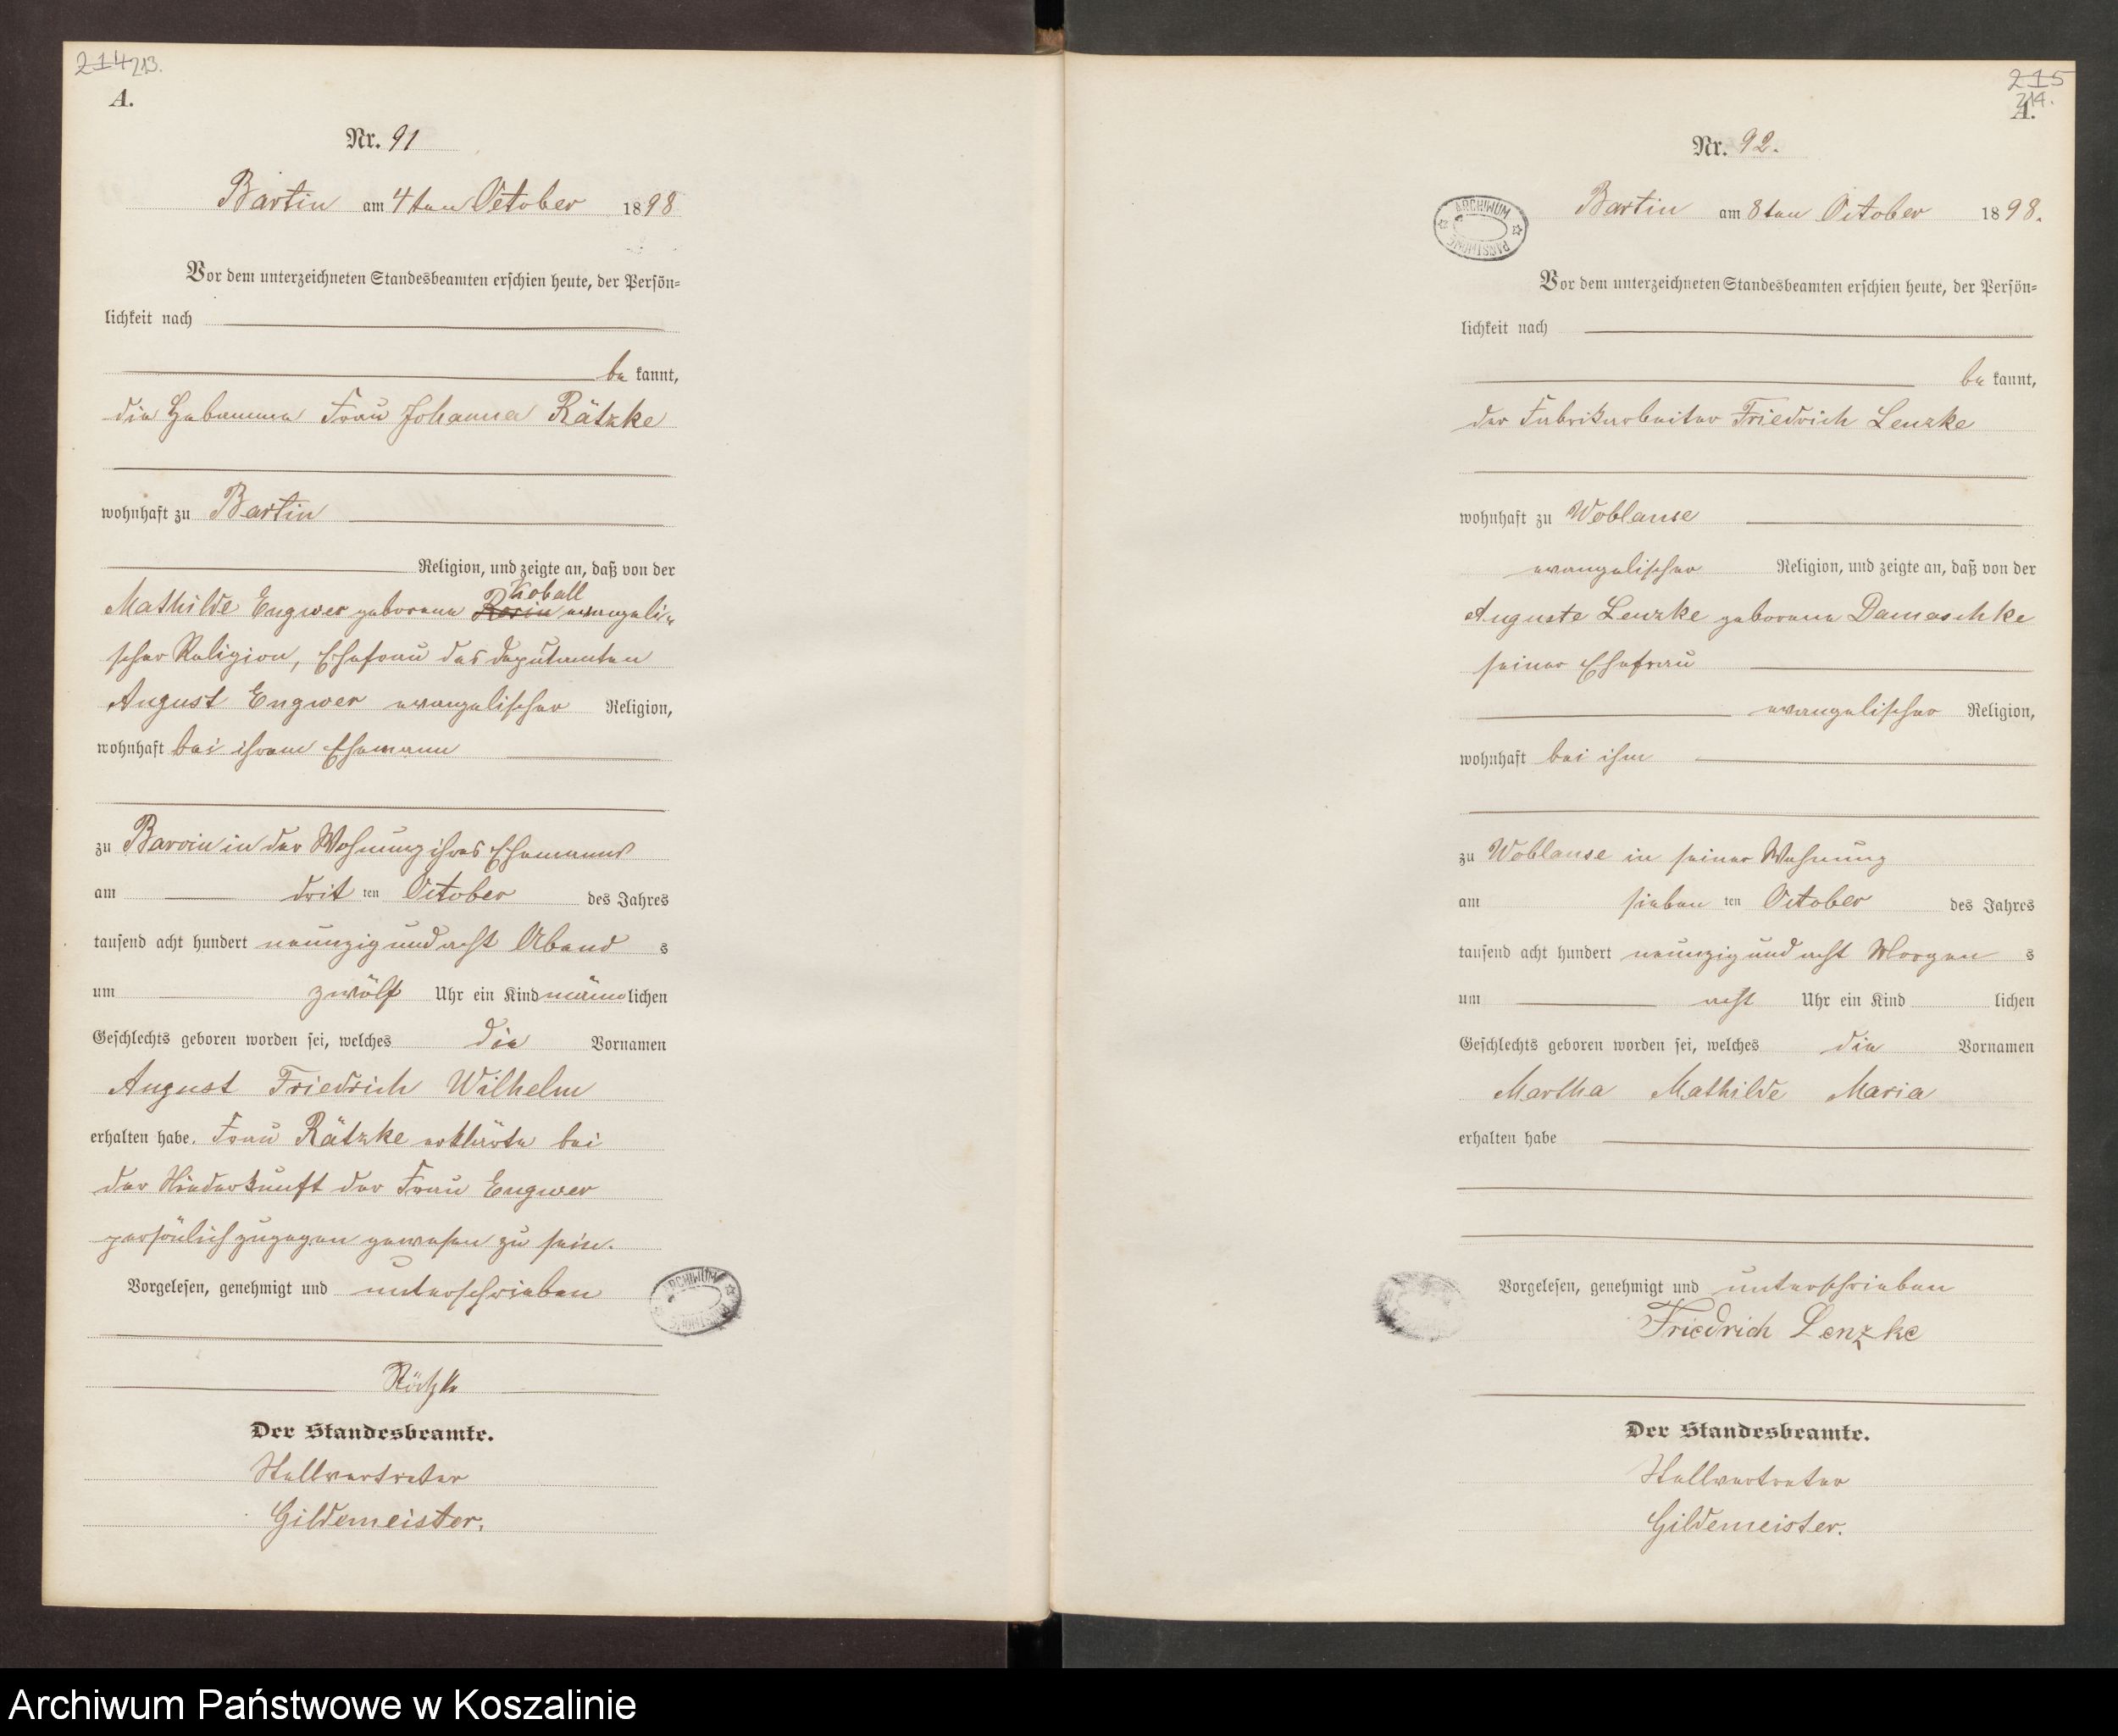 214 213.
A.
Nr. 91
Bartin am 4ten October 1898
Vor dem unterzeichneten Standesbeamten erschien heute, der Persön-
lichkeit nach
be kannt,
die Hebamme Frau Johanna Rätzke
wohnhaft zu Bartin
Religion, und zeigte an, daß von der
Koball
Mathilde Engwer geborene Rosin evangeli-
scher Religion, Ehefrau des Deputanten
August Engwer evangelischer Religion,
wohnhaft bei ihrem Ehemann
zu Barvin in der Wohnung ihres Ehemanns
am drit ten October des Jahres
tausend acht hundert neunzig und acht Abend s
um zwölf Uhr ein Kind männlichen
Geschlechts geboren worden sei, welches die Vornamen
August Friedrich Wilhelm
erhalten habe. Frau Rätzke erklärte bei
der Niederkunft der Frau Engwer
persönlich zugegen gewesen zu sein.
Vorgelesen, genehmigt und unterschrieben
ARCHIWUM
Rätzke
Der Standesbeamte.
Stellvertreter
Gildemeister.
215
214.
A.
Nr. 92.
ARCHIWUM PAŃSTWOWE
Bartin am 8ten October 1898.
Vor dem unterzeichneten Standesbeamten erschien heute, der Persön-
lichkeit nach
be kannt,
der Fabrikarbeiter Friedrich Lenzke
wohnhaft zu Woblanse
evangelischer Religion, und zeigte an, daß von der
Auguste Lenzke geborene Damaschke
seiner Ehefrau
evangelischer Religion,
wohnhaft bei ihm
zu Woblanse in seiner Wohnung
am sieben ten October des Jahres
tausend acht hundert neunzig und acht Morgen s
um acht Uhr ein Kind lichen
Geschlechts geboren worden sei, welches die Vornamen
Martha Mathilde Maria
erhalten habe
Vorgelesen, genehmigt und unterschrieben
Friedrich Lenzke
Der Standesbeamte.
Stellvertreter
Gildemeister.
Archiwum Państwowe w Koszalinie